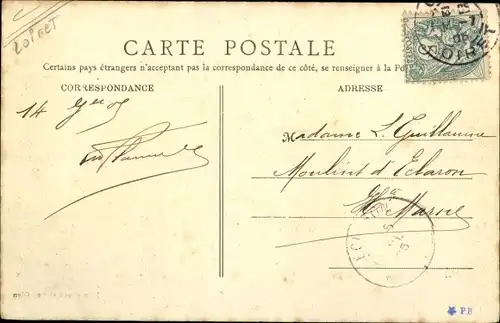 LOIRET
CARTE POSTALE
Certains pays étrangers n'acceptant pas la correspondance de ce côté, se renseigner à la Po
CORRESPONDANCE
ADRESSE
14
Madame L. Guillaume
Moulin d'Eclaron
Hte Marne
P.B